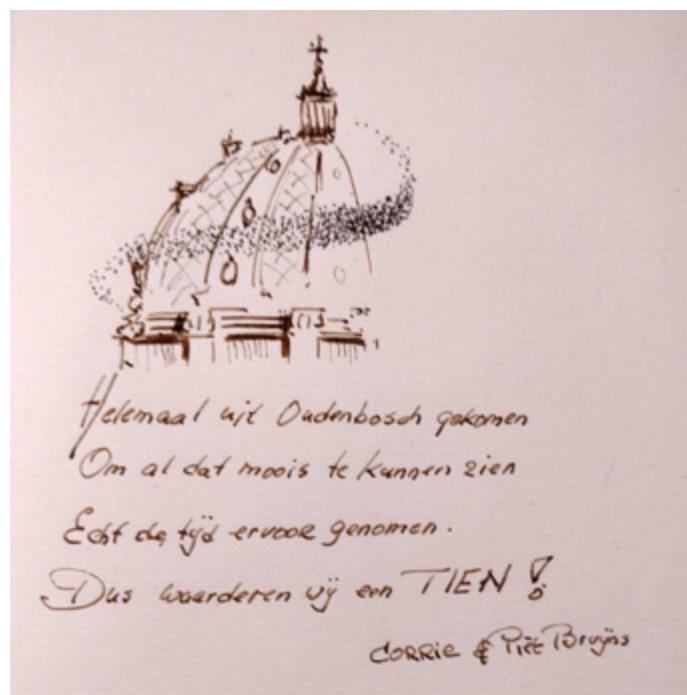 Helemaal uit Oudenbosch gekomen
Om al dat moois te kunnen zien
Echt de tijd ervoor genomen.
Dus waarderen wij een TIEN!
CORRIE & Piet Bruijns